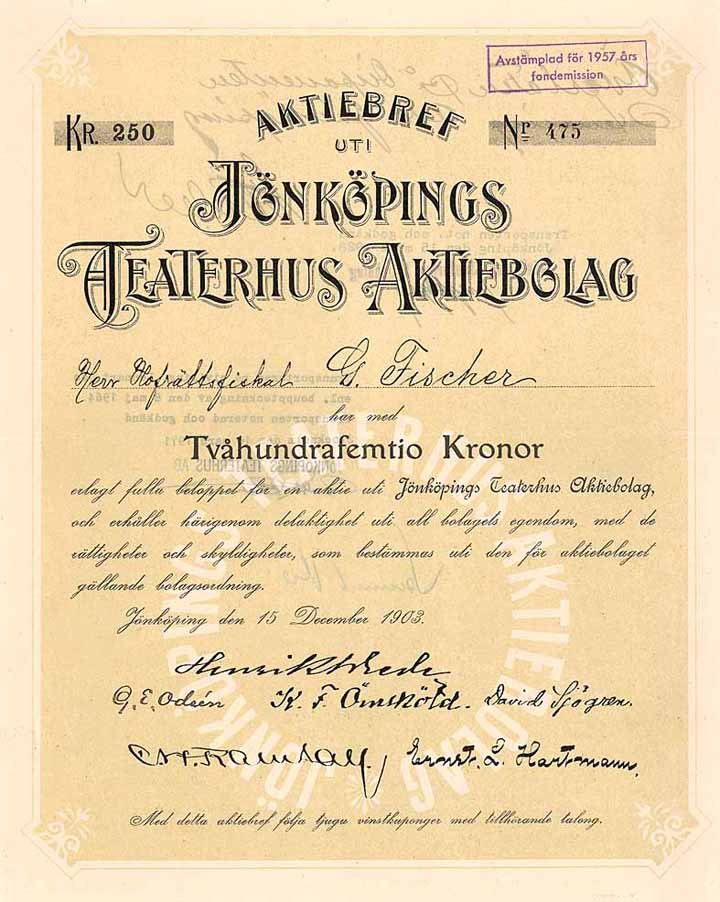 Avstämplad för 1957 års
fondemission
KR. 250
Nr 475
AKTIEBREF
UTI
JÖNKÖPINGS
TEATERHUS AKTIEBOLAG
Herr Hofrättsfiskal G. Fischer
har med
Tvåhundrafemtio Kronor
erlagt fulla beloppet för en aktie uti Jönköpings Teaterhus Aktiebolag,
och erhåller härigenom delaktighet uti all bolagets egendom, med de
rättigheter och skyldigheter, som bestämmas uti den för aktiebolaget
gällande bolagsordning.
Jönköping den 15 December 1903.
G. E. Odeén K. F. Örnsköld. David Sjögren.
Ernst L. Hartmann.
Med detta aktiebref följa tjugu vinstkuponger med tillhörande talong.
JÖNKÖPINGS TEATERHUS AKTIEBOLAG